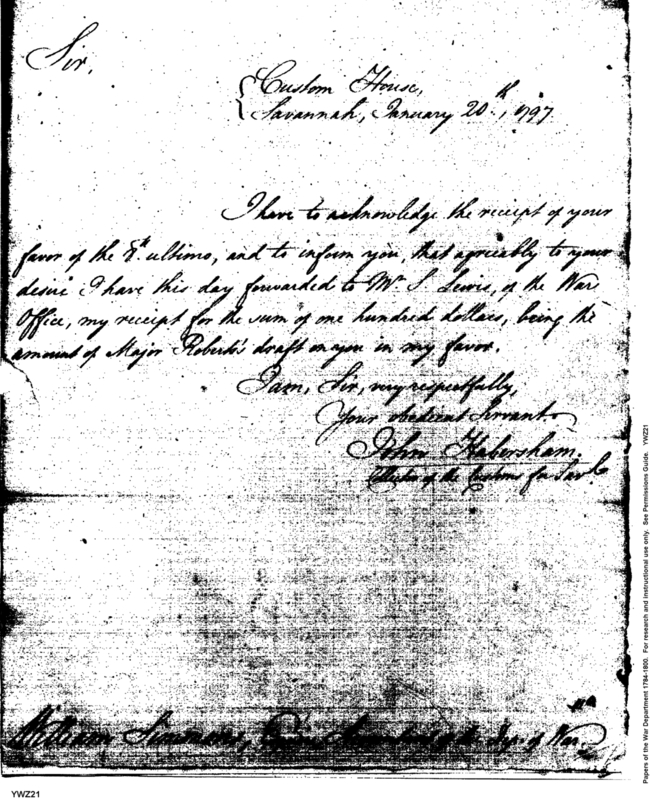 Sir,
Custom House,
Savannah, January 20th, 1797.
I have to acknowledge the receipt of your
favor of the 8th. ultimo, and to inform you, that agreably to your
desire I have this day forwarded to Mr. S. Lewis, of the War
Office, my receipt for the sum of one hundred dollars, being the
amount of Major Roberts's draft on you in my favor.
I am, Sir, very respectfully,
Your obedient Servant.
John Habersham.
Collector of the Customs for Savh.
William Simmons, of the Dept. of War
YWZ21
Papers of the War Department 1784-1800. For research and instructional use only. See Permissions Guide. YWZ21